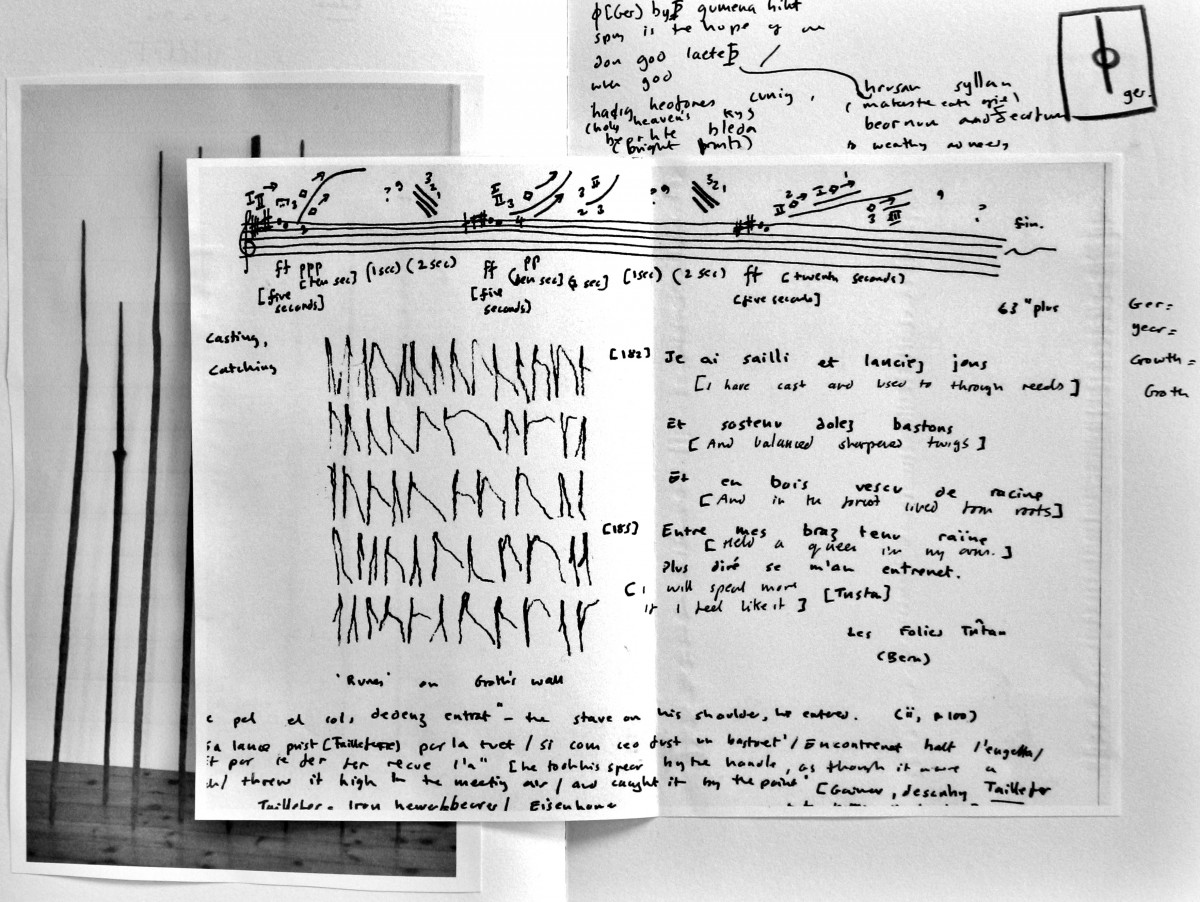 [Ger) byþ gumena hiht
is the hope of
don god læteþ
god
halig heofones cuning,
(holy heaven's king
hrusan syllan
beorhte bleda
(Bright
beornum and
ger.
I
II
3
? 9
3 2 1
I
II 3
3 II
2 3
? 9
3 2 1
II 2 I 1
3 III
,
?
fin.
ff ppp [ten sec] (1sec) (2 sec) ff pp (ten sec) [1sec) (2 sec) ff [twenty seconds)
[five seconds] [five seconds) (five seconds]
63" plus
Ger =
year =
Growth =
Groth
Casting,
Catching
[182] Je ai sailli et lanciez jons
[I have cast and used to through reeds]
Et sostenu dolez bastons
[And balanced sharpened twigs]
Et en bois vescu de racine
[And in the forest lived from roots]
[185] Entre mes braz tenu raïne
[Held a queen in my arms.]
Plus diré se m'an entremet.
[I will speak more
if I feel like it] [Trista]
Les Folies Tristan
(Bern)
'Runes' on Groth's wall
pel el col, dedenz entrat" - the stave on his shoulder, he entered. (ii, p 100)
sa lance prist (Taillefer) par la tuet / si com ceo fust un bastuet / Encontremont halt l'engetta /
Et par le fer recue l'a" [he took his spear by the handle, as though it were a
/ threw it high in the meeting air / and caught it by the point" [Gaimar, describing Taillefer
Taillefer = Iron / Eisenhower